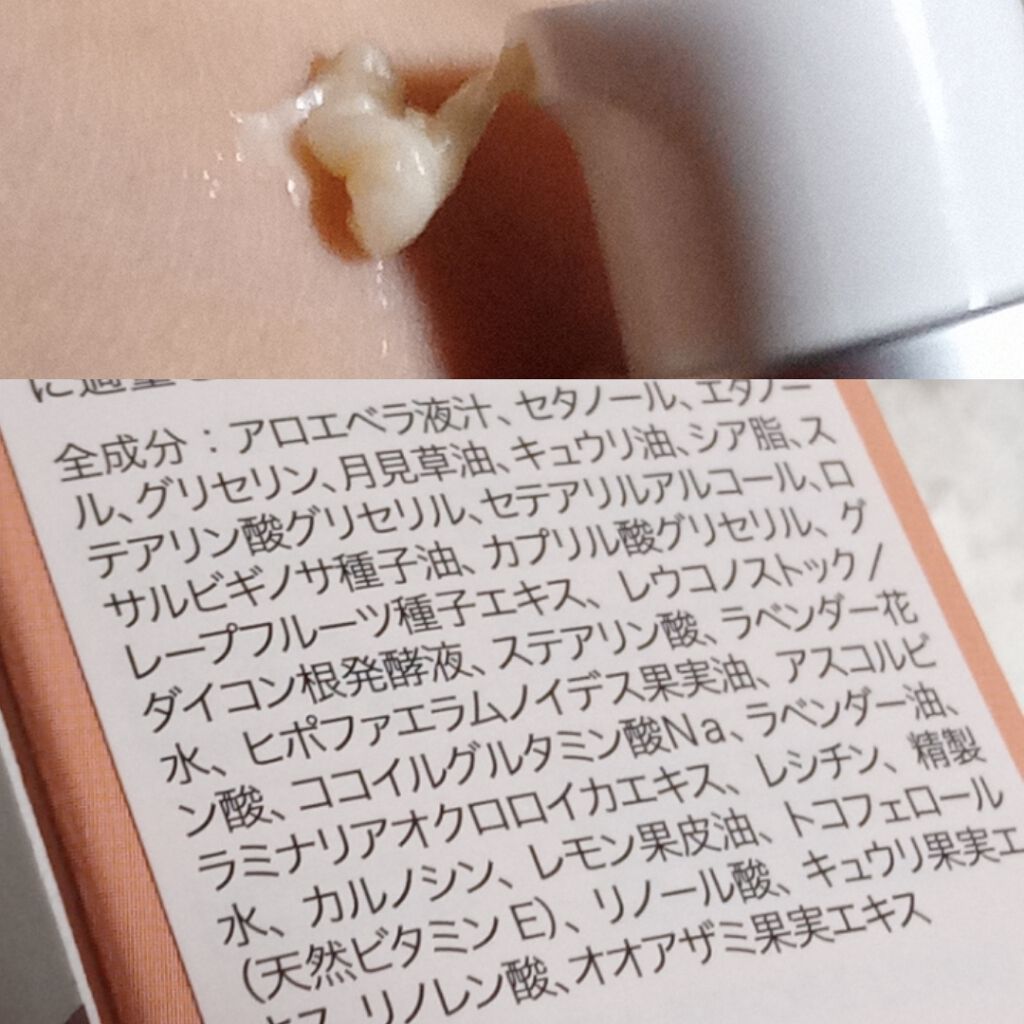 に適量
全成分：アロエベラ液汁、セタノール、エタノー
ル、グリセリン、月見草油、キュウリ油、シア脂、ス
テアリン酸グリセリル、セテアリルアルコール、ロ
サルビギノサ種子油、カプリル酸グリセリル、グ
レープフルーツ種子エキス、レウコノストック/
ダイコン根発酵液、ステアリン酸、ラベンダー花
水、ヒポファエラムノイデス果実油、アスコルビ
ン酸、ココイルグルタミン酸Na、ラベンダー油、
ラミナリアオクロロイカエキス、レシチン、精製
水、カルノシン、レモン果皮油、トコフェロール
（天然ビタミンE）、リノール酸、キュウリ果実エ
キス、リノレン酸、オオアザミ果実エキス